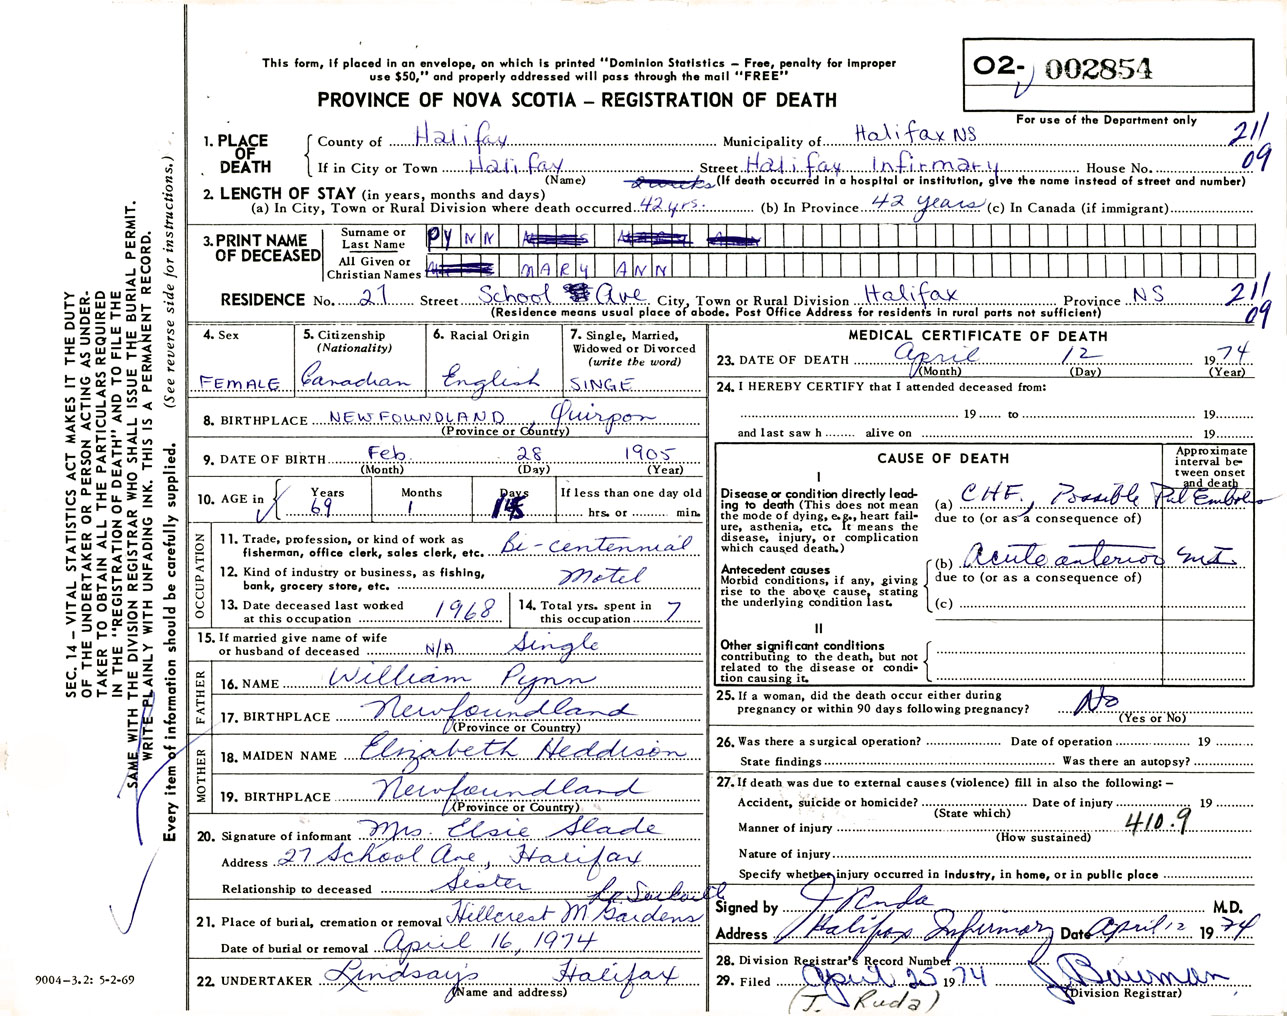 This form, if placed in an envelope, on which is printed "Dominion Statistics – Free, penalty for improper
use $50," and properly addressed will pass through the mail "FREE"
PROVINCE OF NOVA SCOTIA – REGISTRATION OF DEATH
O2- 002854
For use of the Department only
1. PLACE OF DEATH County of Halifax Municipality of Halifax NS 211
If in City or Town Halifax (Name) Street Halifax Infirmary House No. 09
(If death occurred in a hospital or institution, give the name instead of street and number)
2. LENGTH OF STAY (in years, months and days)
(a) In City, Town or Rural Division where death occurred 42 yrs. (b) In Province 42 years (c) In Canada (if immigrant)
3. PRINT NAME OF DECEASED Surname or Last Name PYNN
All Given or Christian Names MARY ANN
RESIDENCE No. 27 Street School Ave City, Town or Rural Division Halifax Province NS 211
(Residence means usual place of abode. Post Office Address for residents in rural parts not sufficient) 09
4. Sex FEMALE
5. Citizenship (Nationality) Canadian
6. Racial Origin English
7. Single, Married, Widowed or Divorced (write the word) SINGE
8. BIRTHPLACE NEWFOUNDLAND, Quirpon
(Province or Country)
9. DATE OF BIRTH Feb. 28 1905
(Month) (Day) (Year)
10. AGE in Years 69 Months 1 Days If less than one day old hrs. or min.
OCCUPATION
11. Trade, profession, or kind of work as fisherman, office clerk, sales clerk, etc. Bi-centennial
12. Kind of industry or business, as fishing, bank, grocery store, etc. Motel
13. Date deceased last worked at this occupation 1968
14. Total yrs. spent in this occupation 7
15. If married give name of wife or husband of deceased N/A Single
FATHER
16. NAME William Pynn
17. BIRTHPLACE Newfoundland
(Province or Country)
MOTHER
18. MAIDEN NAME Elizabeth Heddison
19. BIRTHPLACE Newfoundland
(Province or Country)
20. Signature of informant Mrs. Elsie Slade
Address 27 School Ave, Halifax
Relationship to deceased Sister
21. Place of burial, cremation or removal Hillcrest M. Gardens
Date of burial or removal April 16, 1974
22. UNDERTAKER Lindsay's Halifax
(Name and address)
MEDICAL CERTIFICATE OF DEATH
23. DATE OF DEATH April 12 1974
(Month) (Day) (Year)
24. I HEREBY CERTIFY that I attended deceased from:
19 to 19
and last saw h alive on 19
CAUSE OF DEATH
Approximate interval between onset and death
I
Disease or condition directly leading to death (This does not mean the mode of dying, e.g., heart failure, asthenia, etc. It means the disease, injury, or complication which caused death.)
(a) CHF, Possible Pul Embolis
due to (or as a consequence of)
Antecedent causes
Morbid conditions, if any, giving rise to the above cause, stating the underlying condition last.
(b) Acute anterior
due to (or as a consequence of)
(c)
II
Other significant conditions
contributing to the death, but not related to the disease or condition causing it.
25. If a woman, did the death occur either during pregnancy or within 90 days following pregnancy? No
(Yes or No)
26. Was there a surgical operation? Date of operation 19
State findings Was there an autopsy?
27. If death was due to external causes (violence) fill in also the following: –
Accident, suicide or homicide? Date of injury 19
(State which)
Manner of injury 410.9
(How sustained)
Nature of injury
Specify whether injury occurred in industry, in home, or in public place
Signed by J Ruda M.D.
Address Halifax Infirmary Date April 12 1974
28. Division Registrar's Record Number
29. Filed April 25 1974 J Bowman
(Division Registrar)
(J. Ruda)
SEC. 14 – VITAL STATISTICS ACT MAKES IT THE DUTY
OF THE UNDERTAKER OR PERSON ACTING AS UNDER-
TAKER TO OBTAIN ALL THE PARTICULARS REQUIRED
IN THE "REGISTRATION OF DEATH" AND TO FILE THE
SAME WITH THE DIVISION REGISTRAR WHO SHALL ISSUE THE BURIAL PERMIT.
WRITE PLAINLY WITH UNFADING INK. THIS IS A PERMANENT RECORD.
Every item of information should be carefully supplied. (See reverse side for instructions.)
9004–3.2: 5-2-69